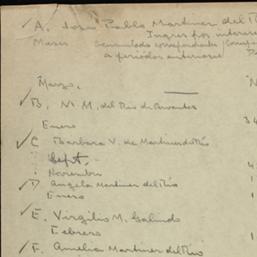 ✓ A. José Pablo Martinez del R
Ingres por interese
Meses Acumulado correspondientes
a periodos anteriores
Marzo.
✓ B. N. M. del Rio de Cervantes
Enero
✓ C Barbara V. de Martinez del Rio
" Sept.
" Noviembre
✓ D Angela Martinez del Rio
Enero
✓ E. Virgilio M. Galindo
Febrero
✓ F. Amelia Martinez del Rio